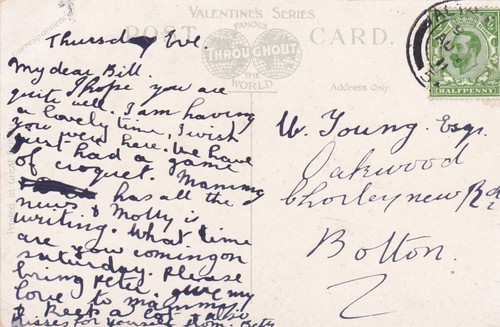 VALENTINE'S SERIES
POST CARD.
FAMOUS
THROUGHOUT
THE
WORLD
Correspondence
Address Only.
HALFPENNY
Thursday Eve.
My dear Bill.
I hope you are
quite well. I am having
a lovely time, I wish
you were here. We have
just had a game
of croquet. Mammy
has all the
news & Molly is
writing. What time
are you coming on
saturday. Please
bring Peter. give my
love to mammy
& keep a lot also
kisses for yourself from. Betty
W. Young. Esq.
Oakwood
Chorley new Rd
Bolton.
Printed in Great